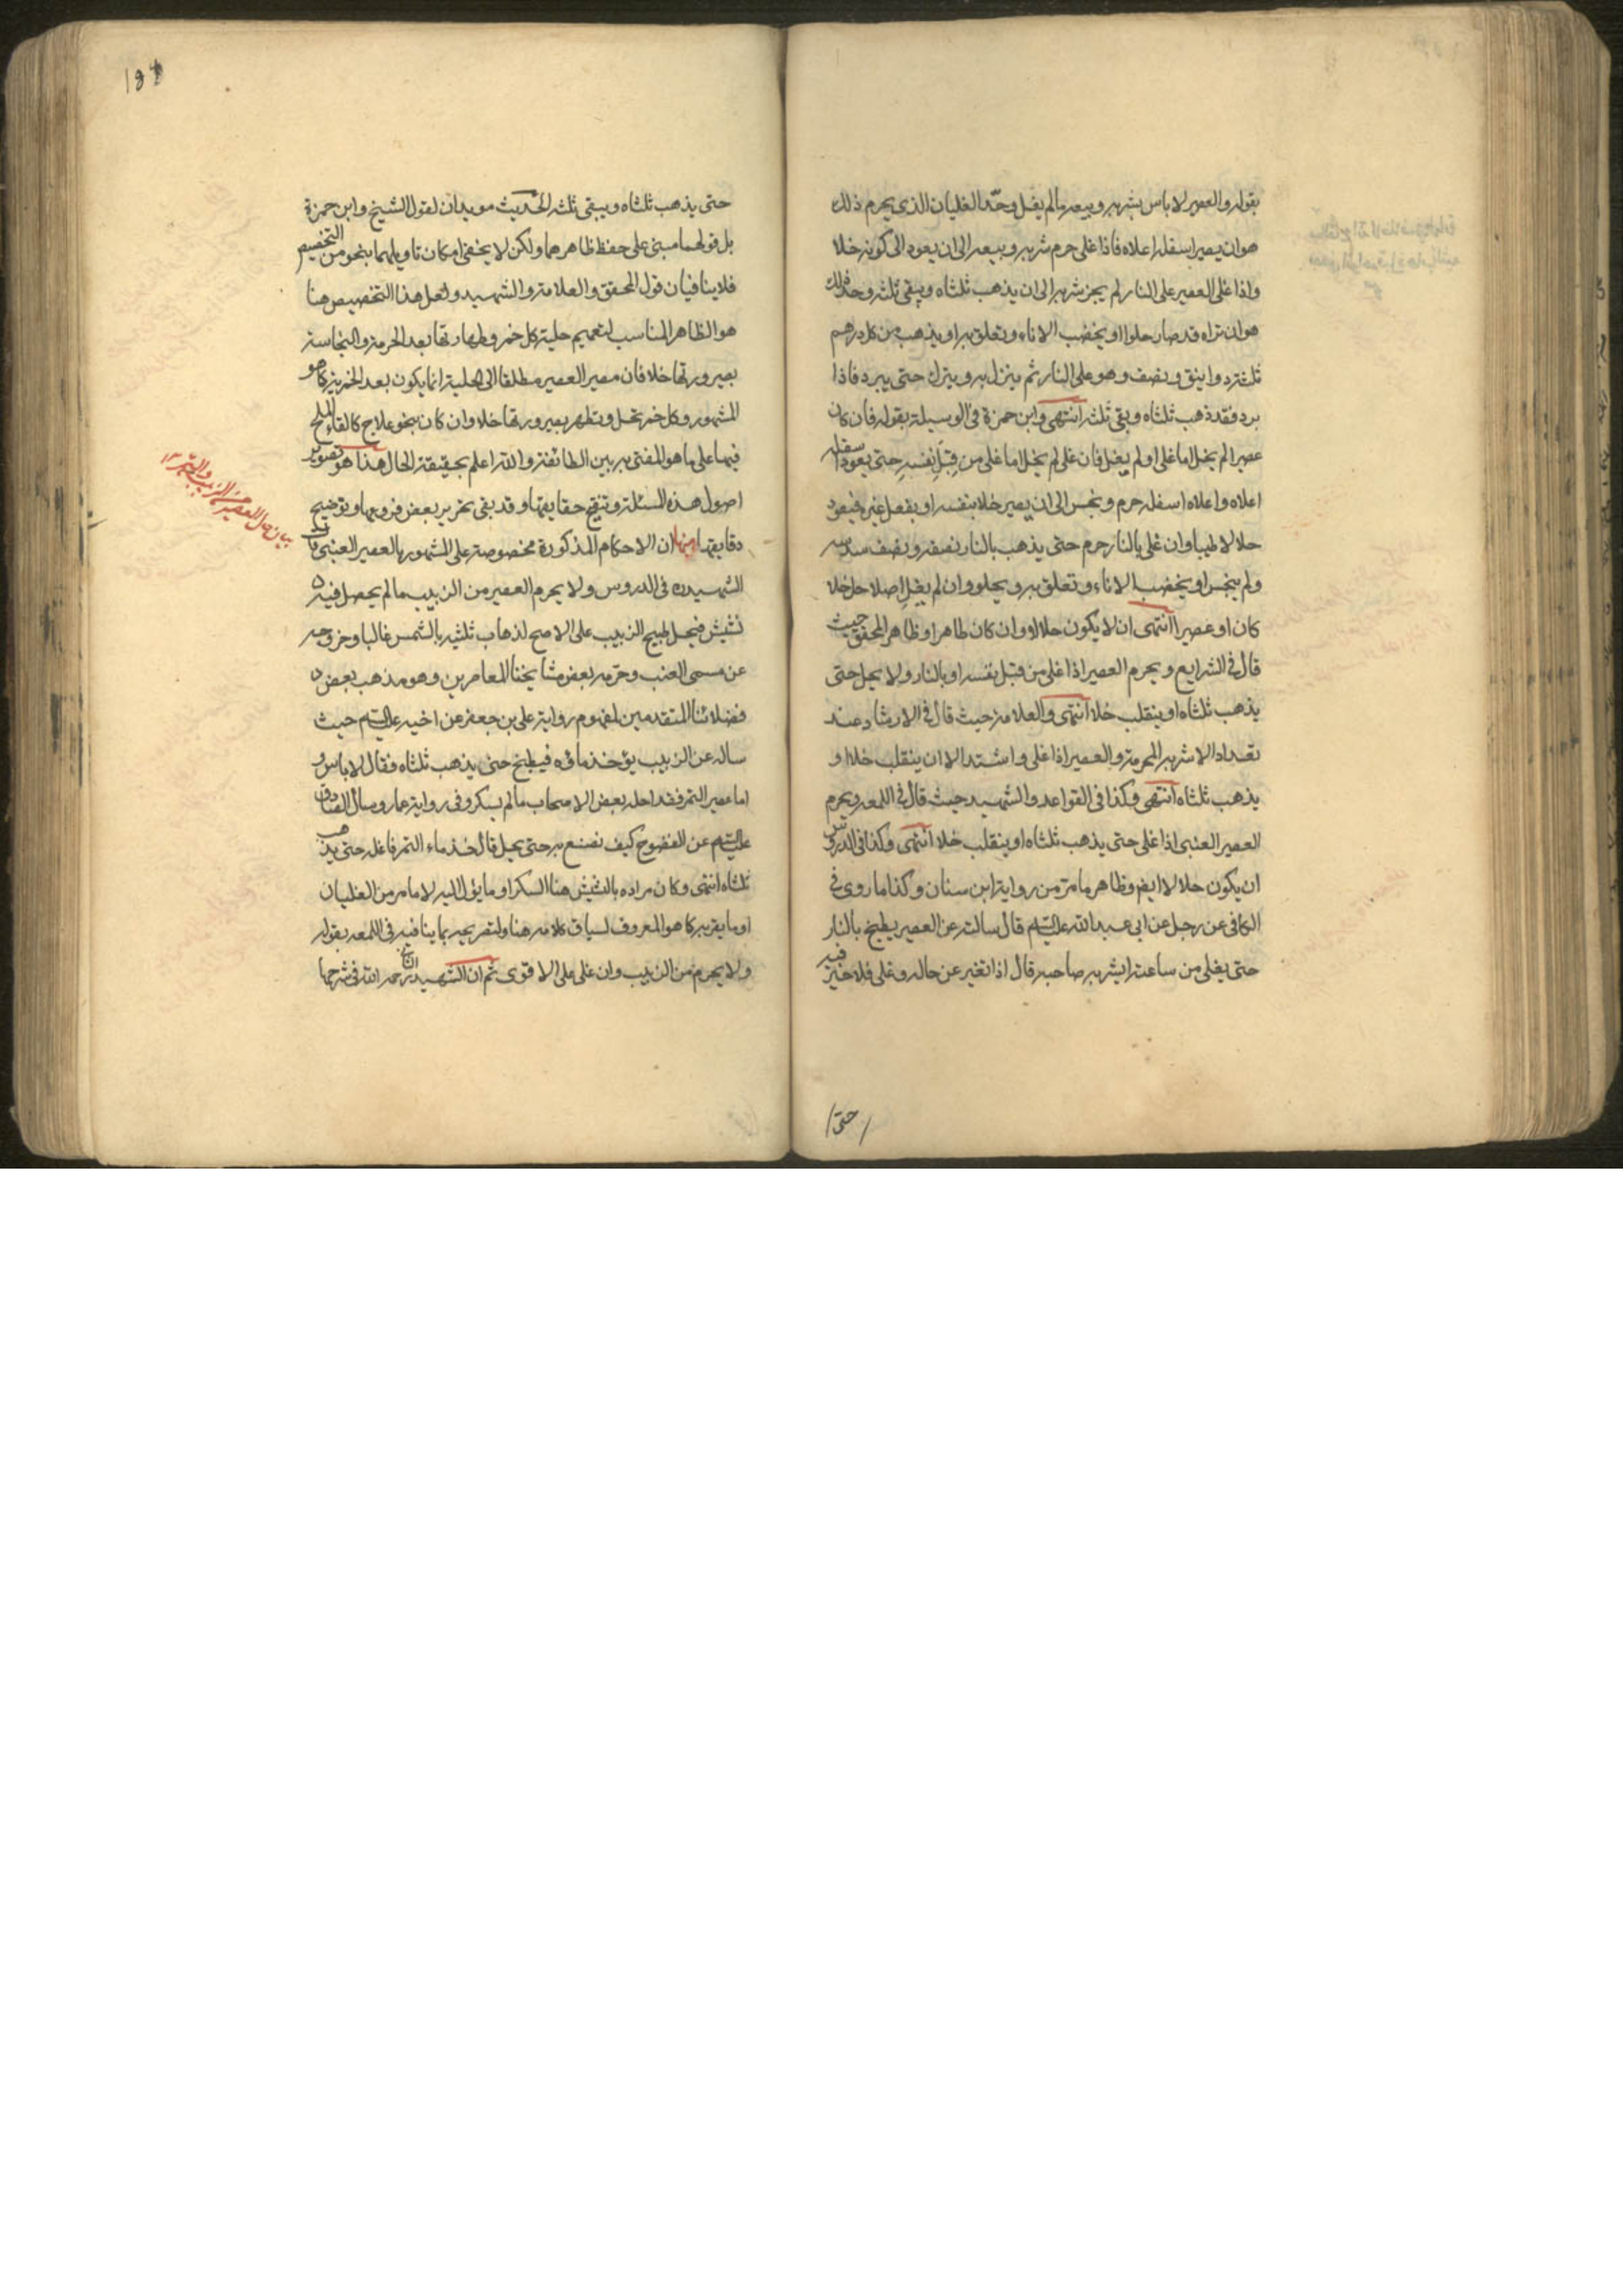 بقوله والعصير لا باس بشربه وبيعه مالم يغل وحدّ الغليان الذي يحرم ذلك
هو ان يصير اسفله اعلاه فاذا غلى حرم شربه وبيعه الى ان يعود الى كونه خلا
واذا غلى العصير على النار لم يجز شربه الى ان يذهب ثلثاه ويبقى ثلثه وحد ذلك
هو ان تراه قد صار حلوا او يخضب الاناء وتعلق به او يذهب من كل درهم
ثلثة دوانيق ونصف وهو على النار ثم ينزل به ويترك حتى يبرد فاذا
برد فقد ذهب ثلثاه وبقى ثلثه انتهى وابن حمزة في الوسيلة بقوله فان كان
عصيرا لم يخل اما غلى او لم يغل فان غلى لم يخل اما غلى من قِبَلِ نفسِهِ حتى يعود اسفله
اعلاه واعلاه اسفله حرم ونجس الى ان يصير خلا بنفسه او بفعل غيره فيعود
حلالا طيبا وان غلى بالنار حرم حتى يذهب بالنار نصفه ونصف سدسه
ولم ينجس او يخضب الاناء وتعلق به ويحلو وان لم يغلِ اصلا حل خلا
كان او عصيرا انتهى ان لا يكون حلالا وان كان طاهرا وظاهر المحقق حيث
قال في الشرايع ويحرم العصير اذا غلى من قبل نفسه او بالنار ولا يحل حتى
يذهب ثلثاه او ينقلب خلا انتهى والعلامة حيث قال في الارشاد عند
تعداد الاشربه المحرمة والعصير اذا غلى واشتد الا ان ينقلب خلا او
يذهب ثلثاه انتهى وكذا في القواعد والشهيد حيث قال في اللمعه ويحرم
العصير العنبى اذا غلى حتى يذهب ثلثاه او ينقلب خلا انتهى وكذا في الدروس
ان يكون حلالا ايضا وظاهر ما مرّ من رواية ابن سنان وكذا ما روى في
الكافى عن رجل عن ابى عبد الله عليه السلام قال سالته عن العصير يطبخ بالنار
حتى يغلى من ساعته ايشربه صاحبه قال اذا تغير عن حاله وغلى فلا خير فيه
حتى
حتى يذهب ثلثاه ويبقى ثلثه الحديث مويدان لقول الشيخ وابن حمزة
بل قولهما مبنى على حفظ ظاهرهما ولكن لا يخفى امكان تاويلهما بنحو من التخصيص
فلا ينافيان قول المحقق والعلامة والشهيد ولعل هذا التخصيص هنا
هو الظاهر المناسب لتعميم حلية كل خمر وطهارتها بعد الحرمة والنجاسة
بصيرورتها خلا فان مصير العصير مطلقا الى الحلية انما يكون بعد الخمرية كما هو
المشهور وكل خمر تحل وتطهر بصيرورتها خلا وان كان بنحو علاج كالقاء الملح
فيها على ما هو المفتى به بين الطائفة والله اعلم بحقيقة الحال هذا هو تصوير
اصول هذه المسئلة وتنقيح حقايقها وقد بقى تحرير بعض فروعها وتوضيح
دقايقها منها ان الاحكام المذكورة مخصوصة على المشهور بالعصير العنبى قال
الشهيد ره في الدروس ولا يحرم العصير من الزبيب مالم يحصل فيه
نشيش فيحل طبيخ الزبيب على الاصح لذهاب ثلثيه بالشمس غالبا وخروجه
عن مسمى العنب وحرّمه بعض مشايخنا المعاصرين وهو مذهب بعض
فضلائنا المتقدمين لمفهوم رواية على بن جعفر عن اخيه عليه السلام حيث
ساله عن الزبيب يؤخذ ماؤه فيطبخ حتى يذهب ثلثاه فقال لا باس و
اما عصير التمر فقد احله بعض الاصحاب مالم يسكر وفى رواية عمار وسال الصادق
عليه السلام عن النضوح كيف نصنع به حتى يحل قال خذ ماء التمر فاغله حتى يذهب
ثلثاه انتهى وكان مراده بالنشيش هنا السكر او ما يؤل اليه لا ما مر من الغليان
او ما يقربه كما هو المعروف لسياق كلامه هنا ولتصريحه بما ينافيه في اللمعه بقوله
ولا يحرم من الزبيب وان غلى على الاقوى ثم ان الشهيد الثانى رحمه الله في شرحها
بيان حال العصير الزبيب والتمر